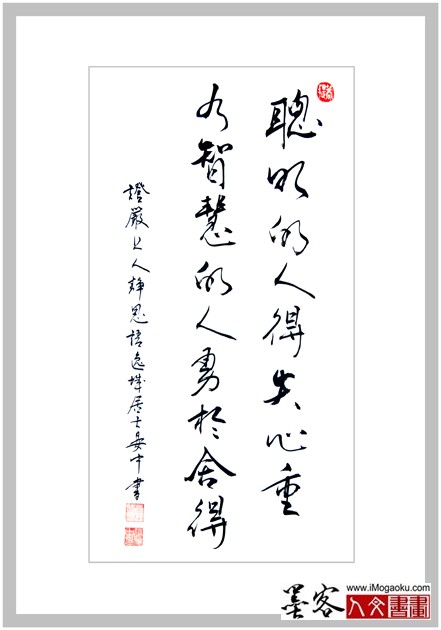 聰明的人得失心重
有智慧的人勇於舍得
證嚴上人靜思語逸城居士晏中書
墨客
www.iMogaoku.com
人文書畫